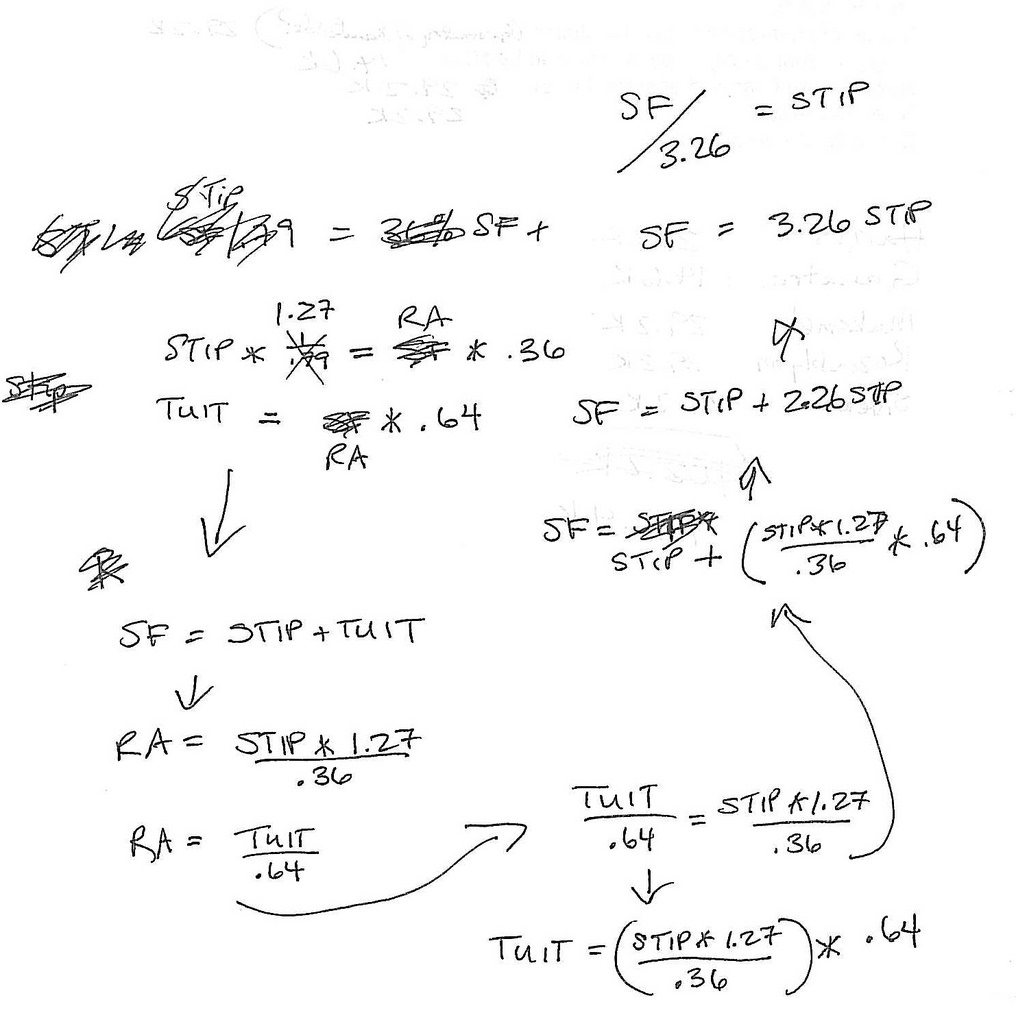 SF / 3.26 = STIP
STIP
= SF +
SF = 3.26 STIP
1.27 RA
STIP * = * .36
TUIT = * .64
RA
SF = STIP + 2.26 STIP
SF = STIP + (STIP * 1.27 / .36 * .64)
SF = STIP + TUIT
RA = STIP * 1.27 / .36
RA = TUIT / .64
TUIT / .64 = STIP * 1.27 / .36
TUIT = (STIP * 1.27 / .36) * .64